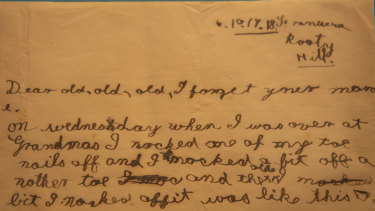 6.10.18.
Rooty
Hill
Dear old, old, old, I forget your nam
e.
on wednesday when I was over at
Grandmas I nocked one of my toe
nails off and I nocked a bit off a
nother toe and the
bit I nocked off it was like this